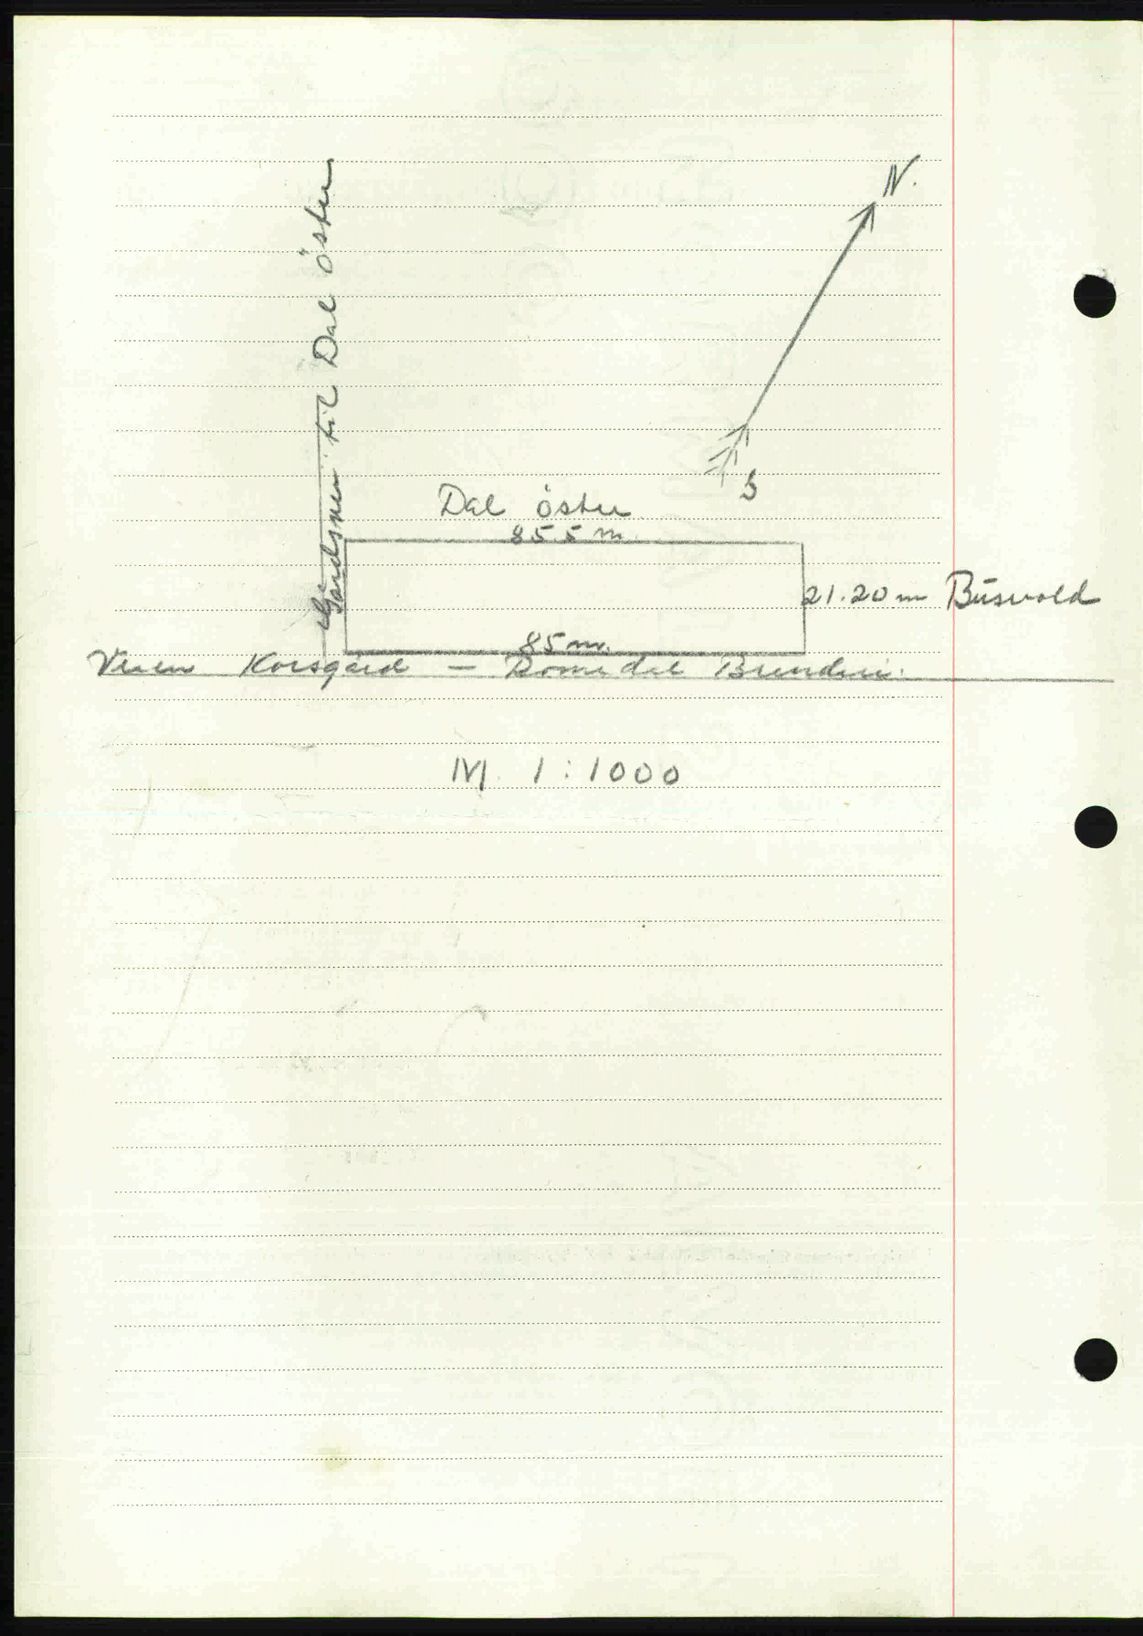 N.
Gårdsvei til Dal östre
S
Dal östre
85.5 m.
21.20 m Busvold
85 m.
Veien Korsgård — Romedal
M. 1:1000